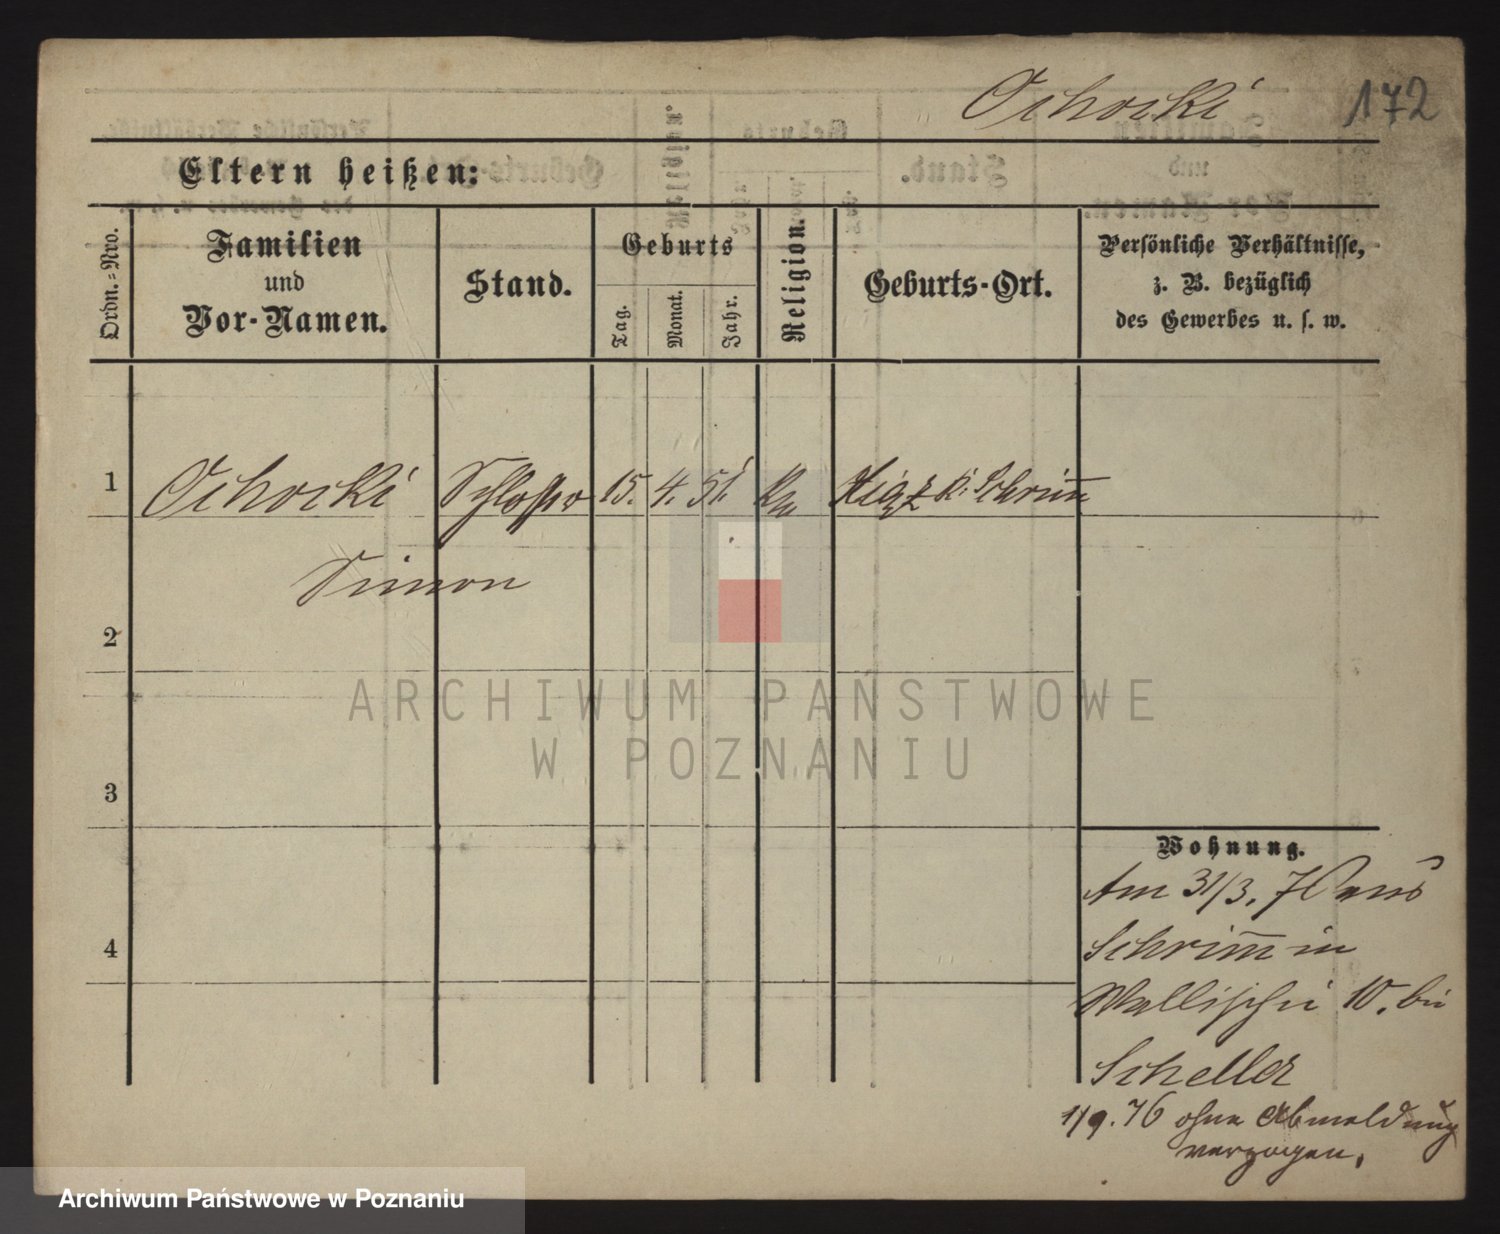 Ochocki 172
Eltern heißen:
Ordn.-Nro.
Familien
und
Vor-Namen.
Stand.
Geburts
Tag.
Monat.
Jahr.
Religion.
Geburts-Ort.
Persönliche Verhältnisse,
z. B. bezüglich
des Gewerbes u. s. w.
1 Ochocki Schlosser 15. 4. 51. K. Schrim̅
Simon
2
3
4
Wohnung.
Am 31/3. 76 aus
Schrim̅ in
Wallischei 10. bei
Scheller
1/9. 76 ohne Abmeldung
verzogen.
ARCHIWUM PAŃSTWOWE
W POZNANIU
Archiwum Państwowe w Poznaniu